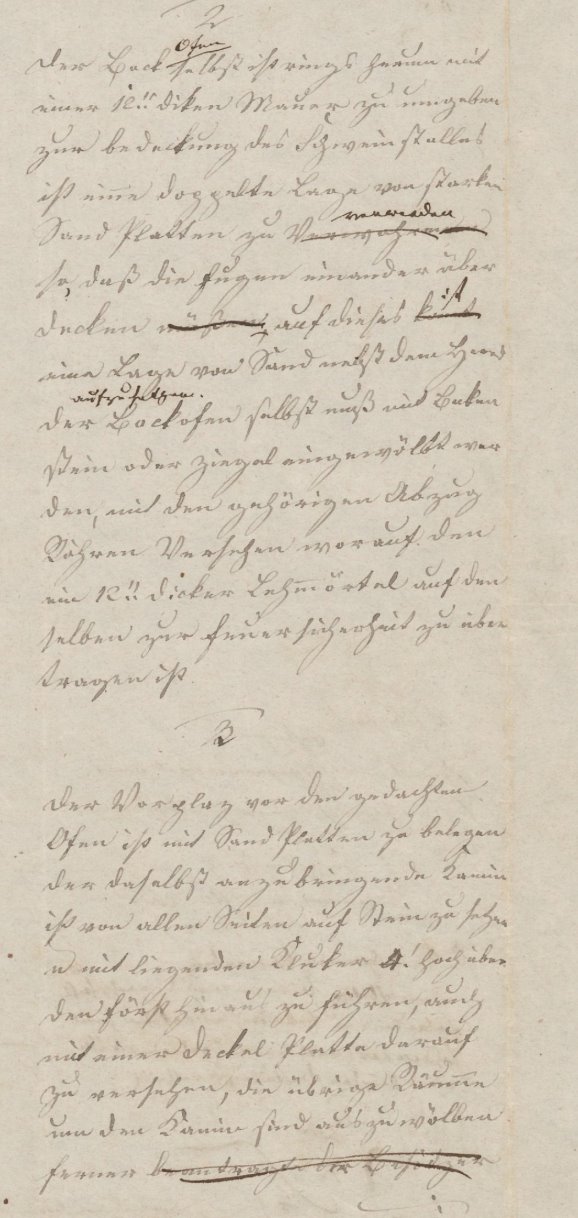 2
Ofen
der Back selbst ist rings herum mit
einer 12" diken Mauer zu umgeben
zur bedeckung des Schweinstalles
ist eine doppelte Lage von starken
verwenden
Sand Platten zu Verwahren
so, daß die Fugen einander über
ist
decken müßen, auf dieses kommt
eine Lage von Sand nebst dem Herd
aufzusetzen.
der Backofen selbst muß mit Baken
stein oder Ziegel eingewölbt wer
den, mit den gehörigen Abzug
Röhren Versehen worauf den
ein 12" dicker Lehmörtel auf den
selben zur feuersicherheit zu über
tragen ist
3
der Vorplaz vor den gedachten
Ofen ist mit Sand Platten zu belegen
der daselbst anzubringende Kamin
ist von allen Seiten auf Stein zu setzen
u mit liegenden Kluker 4' hoch über
den först hinaus zu führen, auch
mit einer Deckel Platte darauf
zu versehen, die übrige Räumme
um den Kamin sind auszuwölben
ferner beantragt der Besitzer